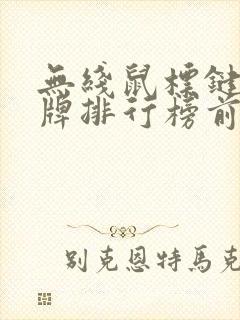 無綫鼠標鍵
牌排行榜前
別克恩特馬克